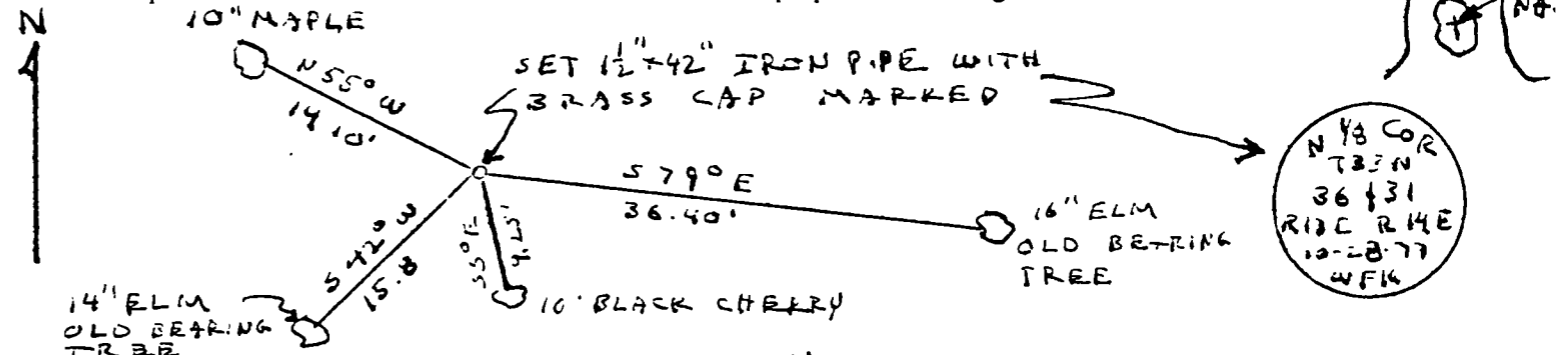 N
10" MAPLE
N 55° W
14.10'
SET 1½"×42" IRON PIPE WITH
BRASS CAP MARKED
S 79° E
36.40'
16" ELM
OLD BEARING
TREE
S 42° W
15.8
S 5° E
10" BLACK CHERRY
14" ELM
OLD BEARING
TREE
N 1/8 COR
36 31
R13E R14E
WFK